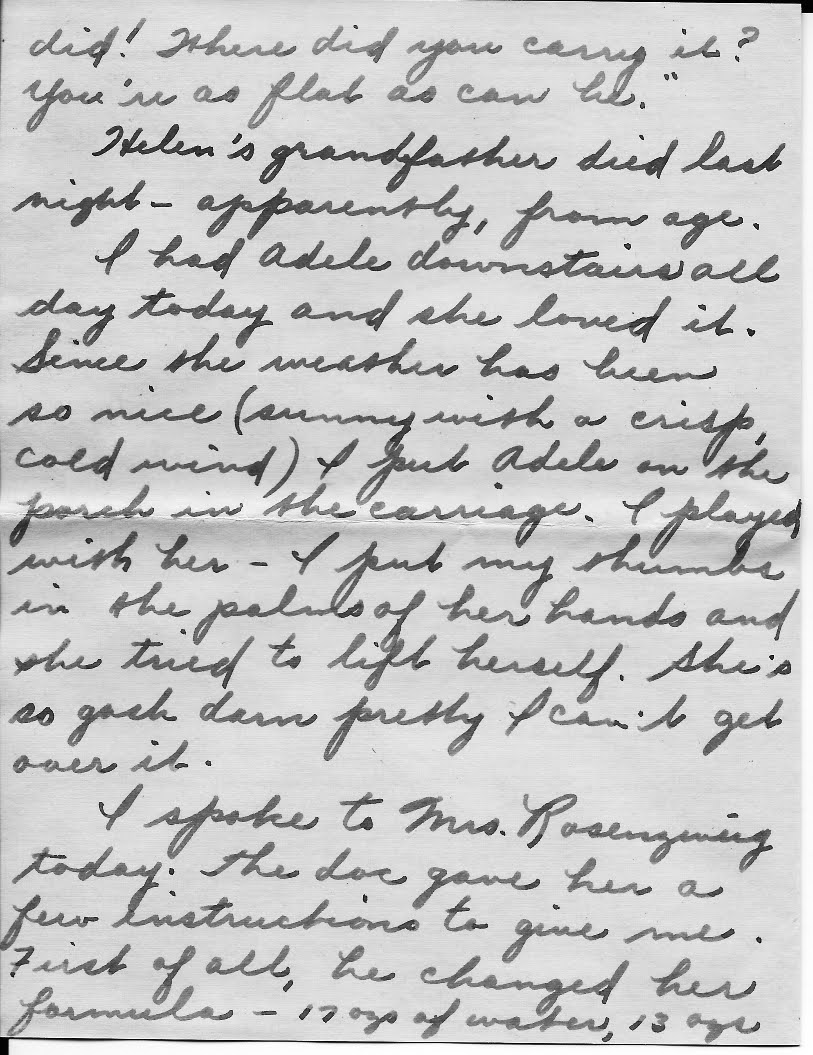 did! Where did you carry it?
You're as flat as can be."
Helen's grandfather died last
night - apparently, from age.
I had Adele downstairs all
day today and she loved it.
Since the weather has been
so nice (sunny with a crisp,
cold wind) I put Adele on the
porch in the carriage. I played
with her - I put my thumbs
in the palms of her hands and
she tried to lift herself. She's
so gosh darn pretty I can't get
over it.
I spoke to Mrs. Rosenzweig
today. The doc gave her a
few instructions to give me.
First of all, he changed her
formula - 17 ozs of water, 13 ozs